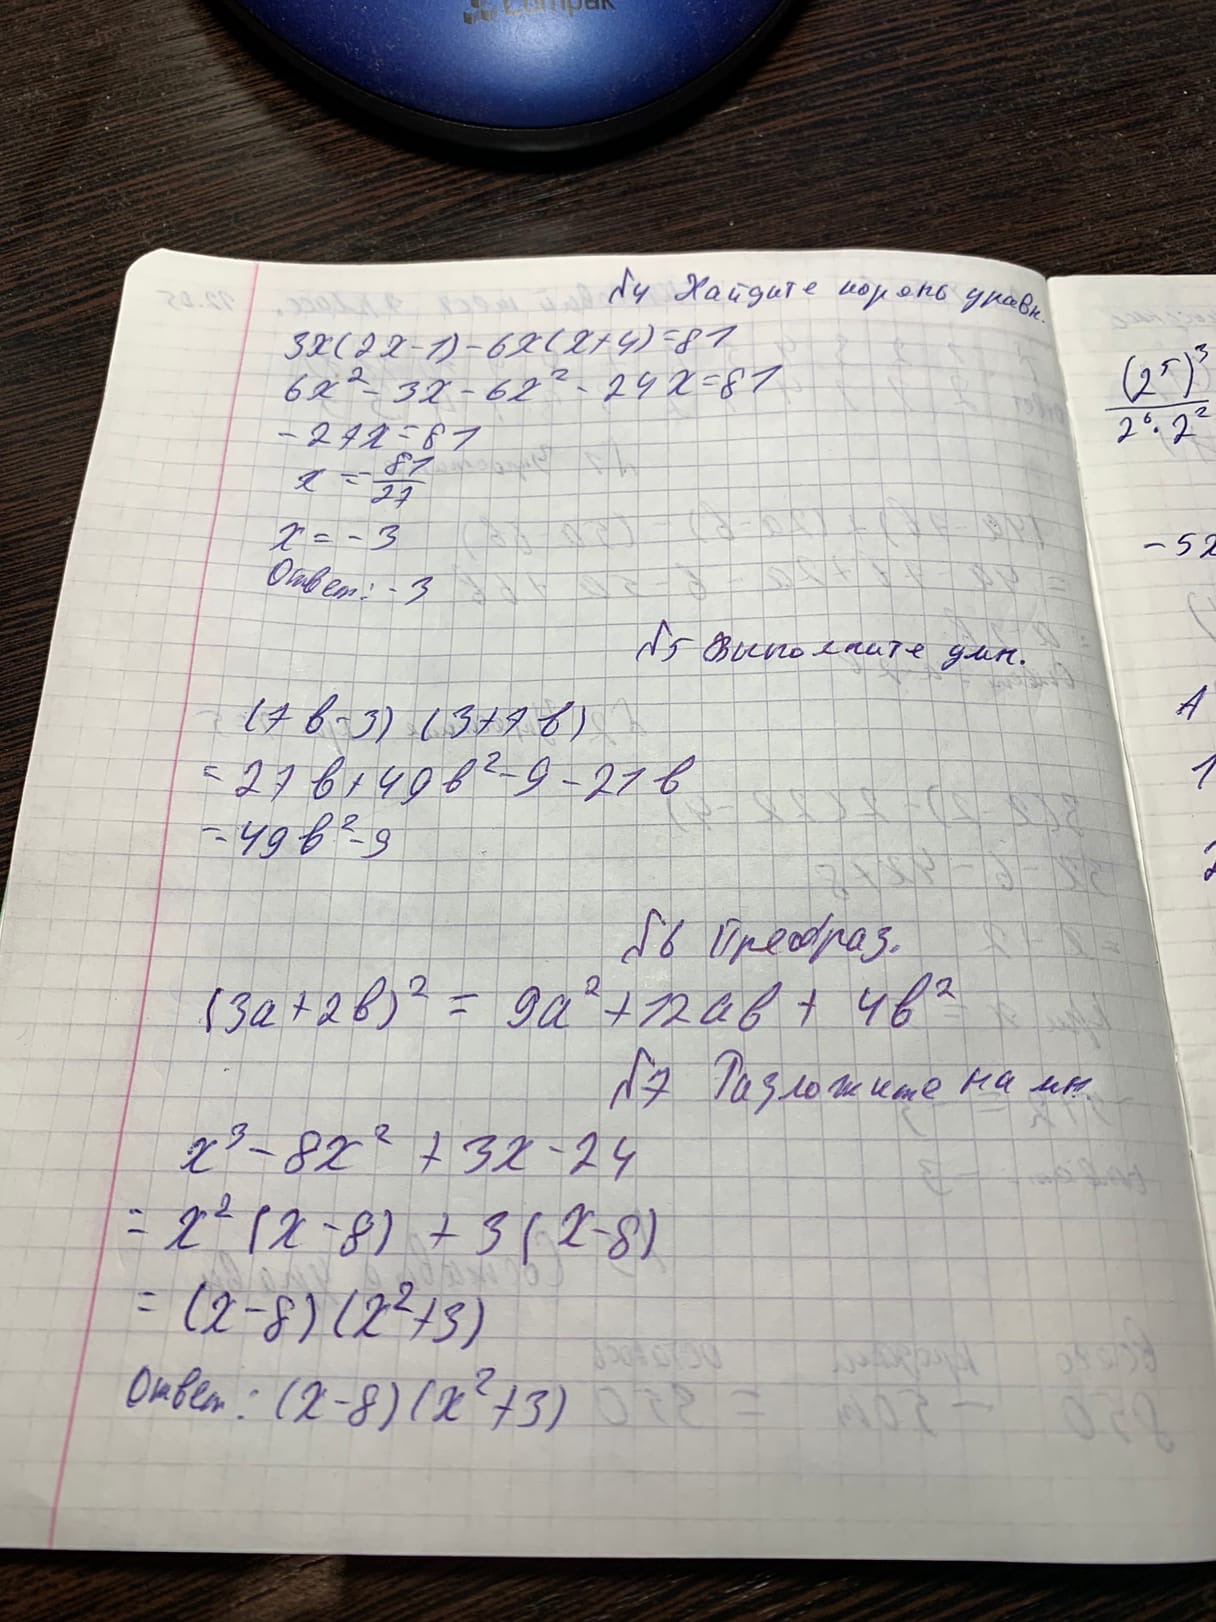 Compak
№4 Найдите корень уравн.
3x(2x-1)-6x(x+4)=81
6x²-3x-6x²-24x=81
-27x=81
x=-81/27
x=-3
Ответ: -3
№5 Выполните умн.
(7b-3)(3+7b)
=21b+49b²-9-21b
=49b²-9
№6 Преобраз.
(3a+2b)²=9a²+12ab+4b²
№7 Разложите на мн.
x³-8x²+3x-24
=x²(x-8)+3(x-8)
=(x-8)(x²+3)
Ответ: (x-8)(x²+3)
(2⁵)³
2⁶·2²
-5x
A
1
2